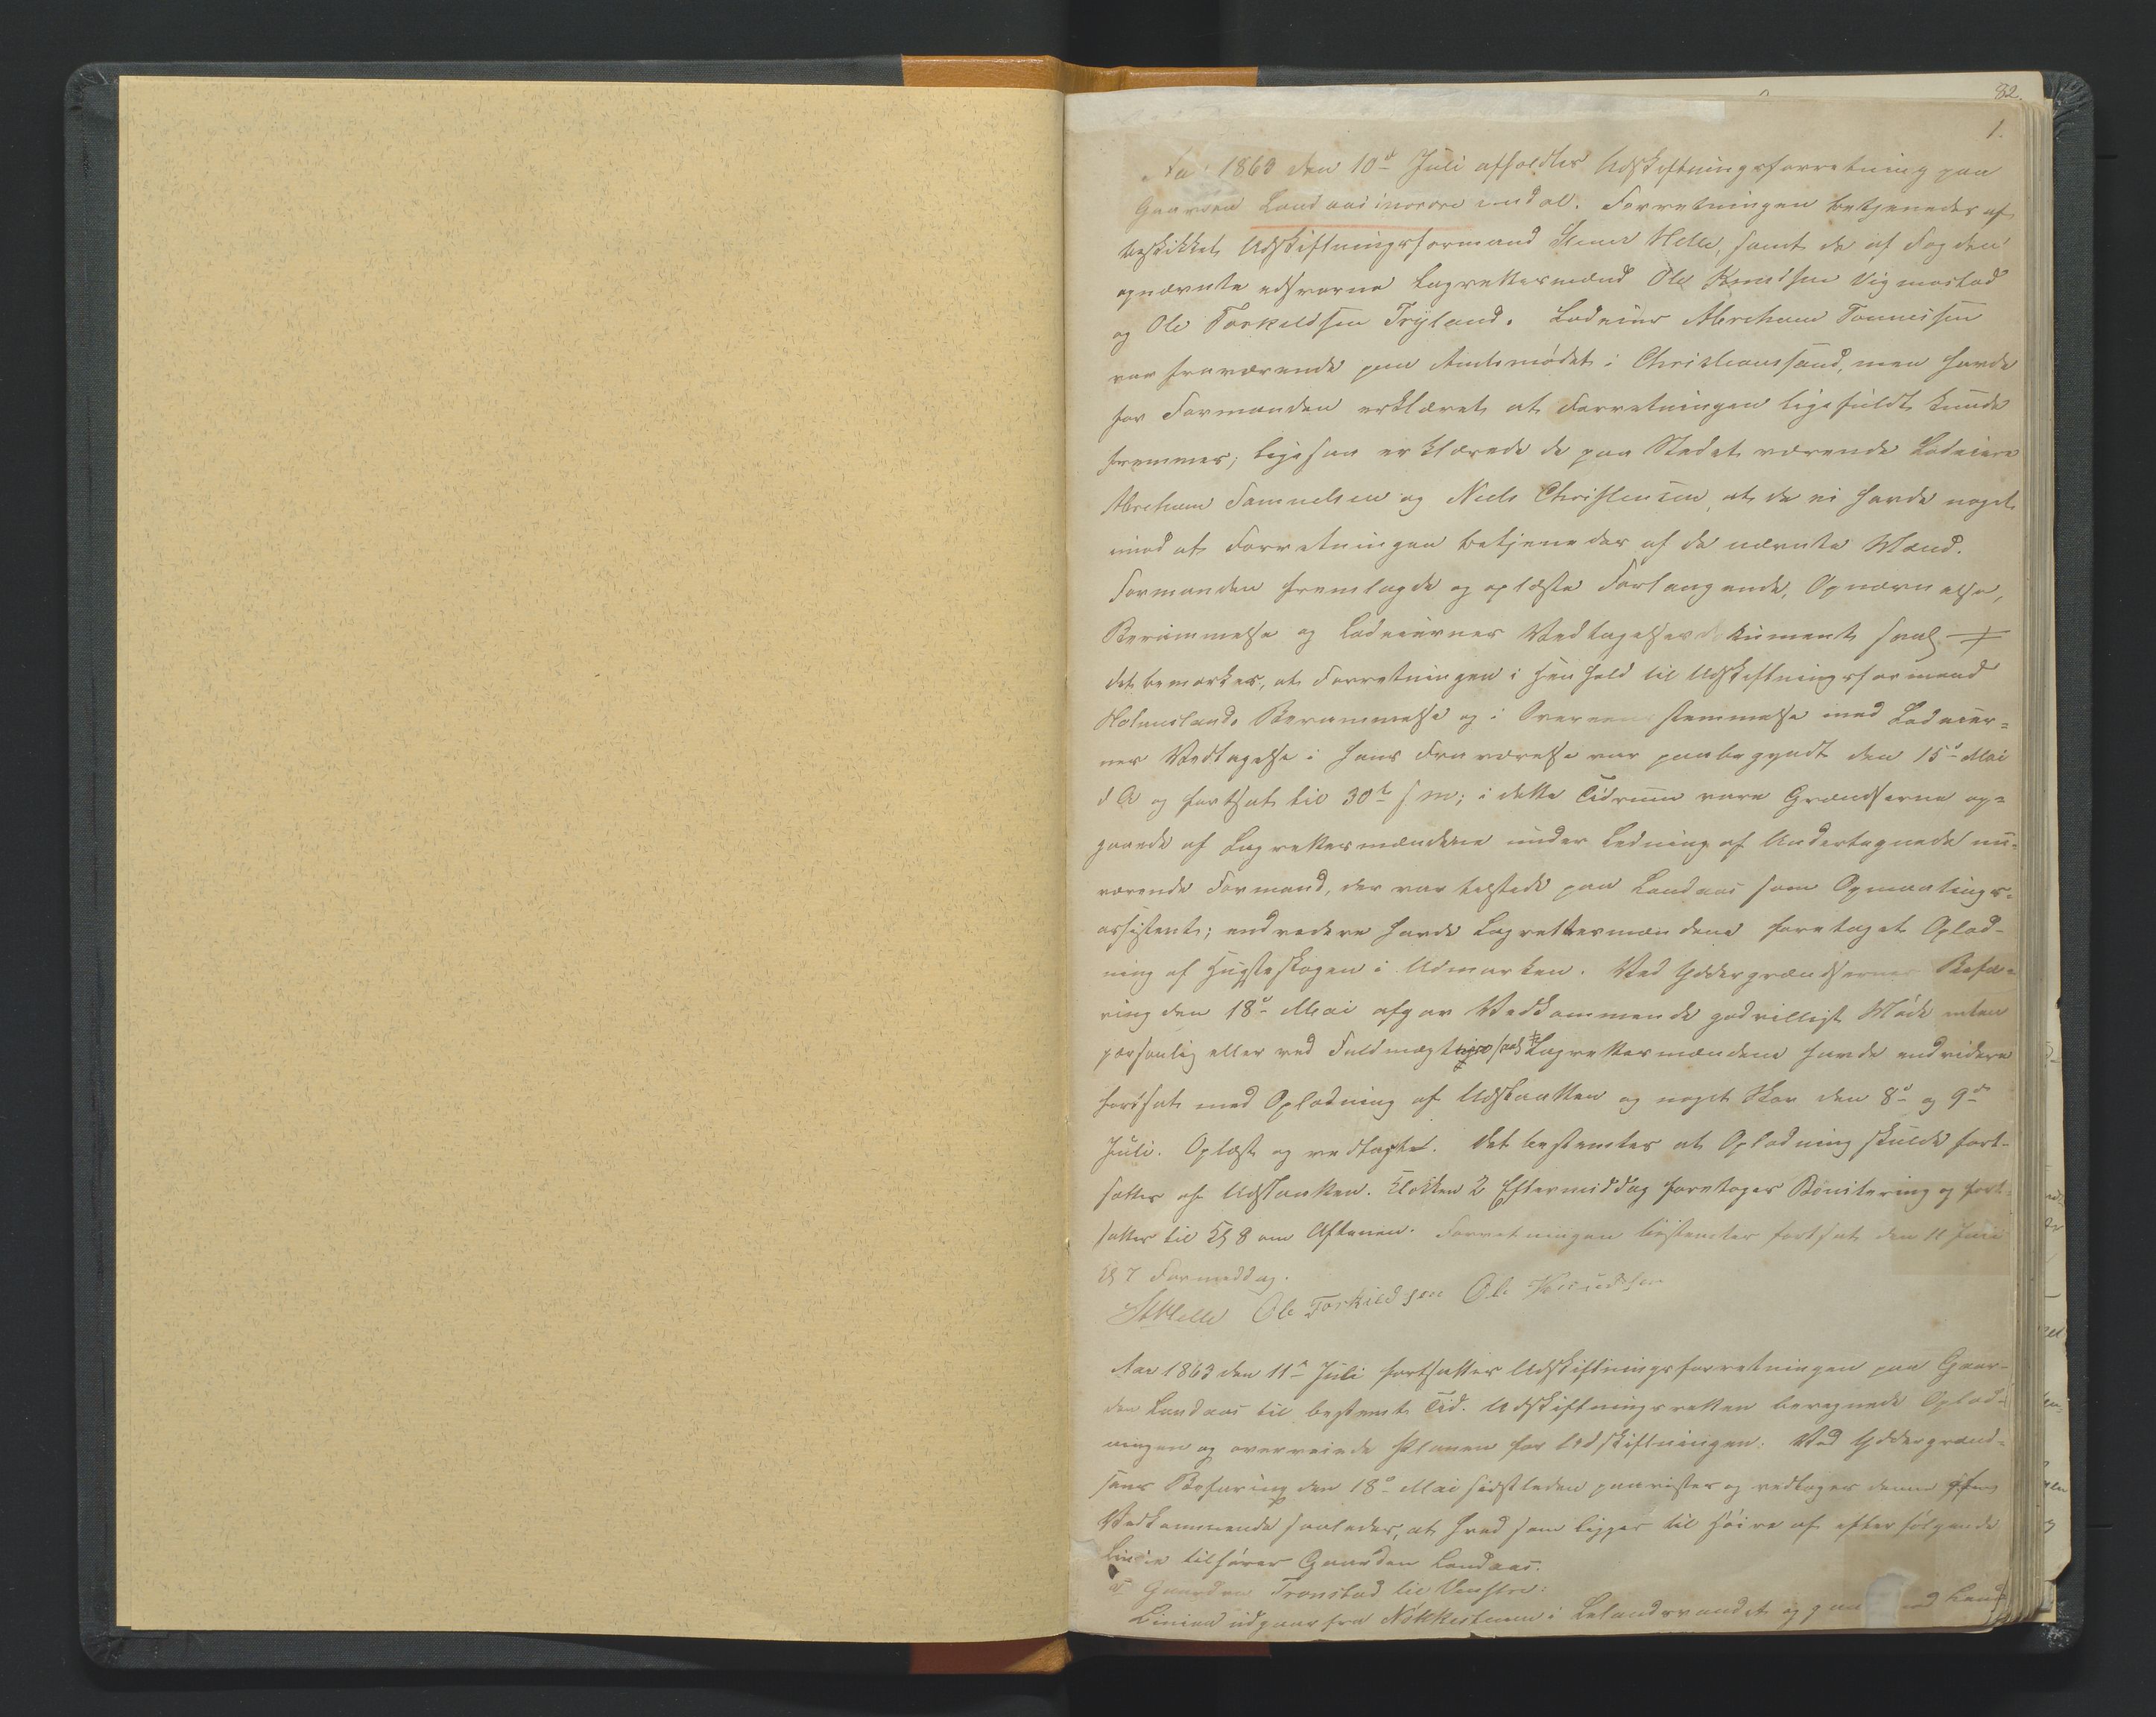 82.
1.
Aar 1863 den 10de Juli afholdtes Udskiftningsforretning paa
Gaarden Landaas i nordre Undal. Forretningen betjenedes af
beskikket Udskiftningsformand Helle, samt de af Fogden
opnævnte edsvorne Lagrettesmænd Ole Knudsen Vigmostad
og Ole Torkeldsen Tryland. Lodeier Abraham Tønnesen
var fraværende paa Amtsmødet i Christianssand, men havde
for Formanden erklæret at Forretningen ligefuldt kunde
fremmes; ligesaa erklærede de paa Stedet værende Lodeiere
Abraham Samuelsen og Niels Christensen, at de ei havde noget
imod at Forretningen betjenedes af de nævnte Mænd.
Formanden fremlagde og oplæste Forlangende, Opnævnelse,
Berammelse og Lodeiernes Vedtagelsesdokument
det bemærkes, at Forretningen i Henhold til Udskiftningsformand
Holmeslands Berammelse og i Overeensstemmelse med Lodeier-
nes Vedtagelse i hans Fraværelse var paabegyndt den 15de Mai
d A og fortsat til 30te s M; i dette Tidrum vare Grændserne op-
gaaede af Lagrettesmændene under Ledning af Undertegnede nu-
værende Formand, der var tilstede paa Landaas som Opmaalings-
assistent; endvidere havde Lagrettesmændene foretaget Oplod-
ning af Hugsteskogen i Udmarken. Ved Yddergrændsernes Befa-
ring den 18de Mai afgav Vedkommende godvilligt Møde enten
personlig eller ved Fuldmægtige Lagrettesmændene havde endvidere
fortsat med Oplodning af Udslaatten og noget Skov den 8de og 9de
Juli. Oplæst og vedtaget. Det bestemtes at Oplodning skulde fort-
sættes af Udslaatten. Klokken 2 Eftermiddag foretoges Bonitering og fort-
sattes til Kl 8 om Aftenen. Forretningen bestemtes fortsat den 11 Juli
Kl 7 Formiddag.
Helle Ole Torkildsen Ole Knudsen
Aar 1863 den 11te Juli fortsattes Udskiftningsforretningen paa Gaar-
den Landaas til bestemt Tid. Udskiftningsretten beregnede Oplod-
ningen og overveiede Planen for Udskiftningen. Ved Yddergrænd-
sens Befaring den 18de Mai sidstleden paavistes og vedtoges denne af
Vedkommende saaledes, at hvad som ligger til Høire af efterfølgende
Linie tilhører Gaarden Landaas.
Gaarden Tronstad til Venstre:
Linien udgaar fra Nøkkestenen i Lelandsvandet og